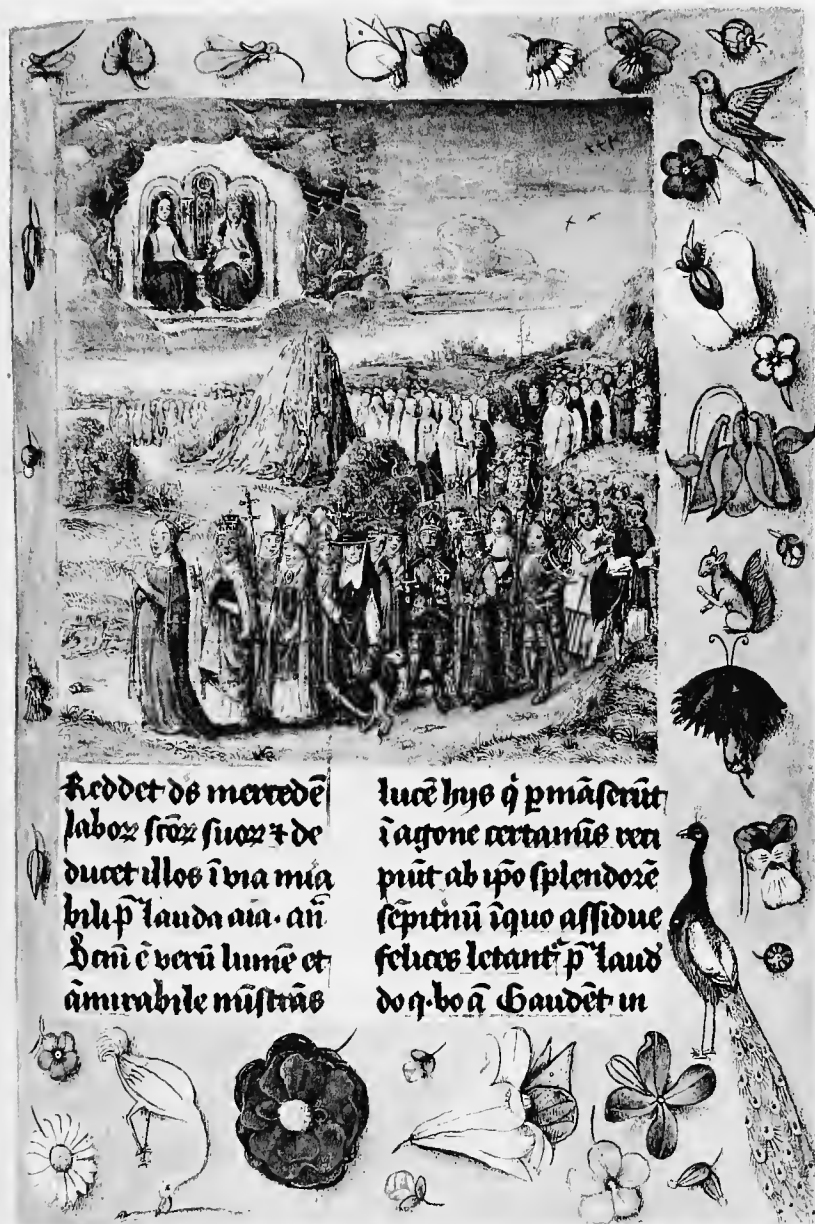 Reddet ds mercedē
laboꝝ scōꝝ suoꝝ ⁊ de
ducet illos ī via mia
bili p̄ lauda aīa. an̄
Scm̄ ē verū lumē et
āmirabile mīstrās
lucē hijs q̇ ꝑmāserūt
ī agone certamīs reci
piūt ab ip̄o splendorē
sēpitnū īquo assidue
felices letant᷑ p̄ laud
do q. bo ā Gaudēt in